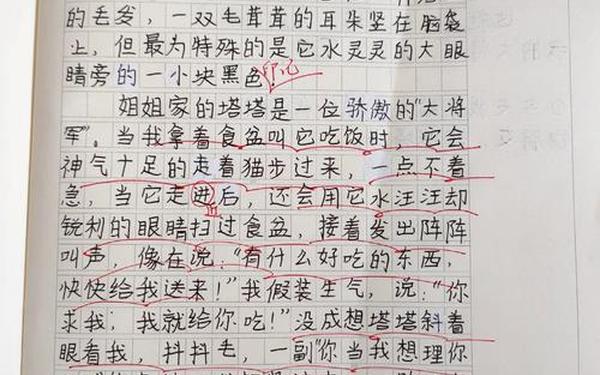 的毛发，一双毛茸茸的耳朵竖在脑袋
上，但最为特殊的是它水灵灵的大眼
睛旁的一小块黑色印记！
姐姐家的塔塔是一位骄傲的“大将
军”。当我拿着食盆叫它吃饭时，它会
神气十足的走着猫步过来，一点不着
急，当它走进后，还会用它水汪汪却
近
锐利的眼睛扫过食盆，接着发出阵阵
叫声，像在说：“有什么好吃的东西，
快快给我送来！”我假装生气，说：“你
求我，我就给你吃！”没成想塔塔斜着
眼看我，抖抖毛，一副“你当我想理你